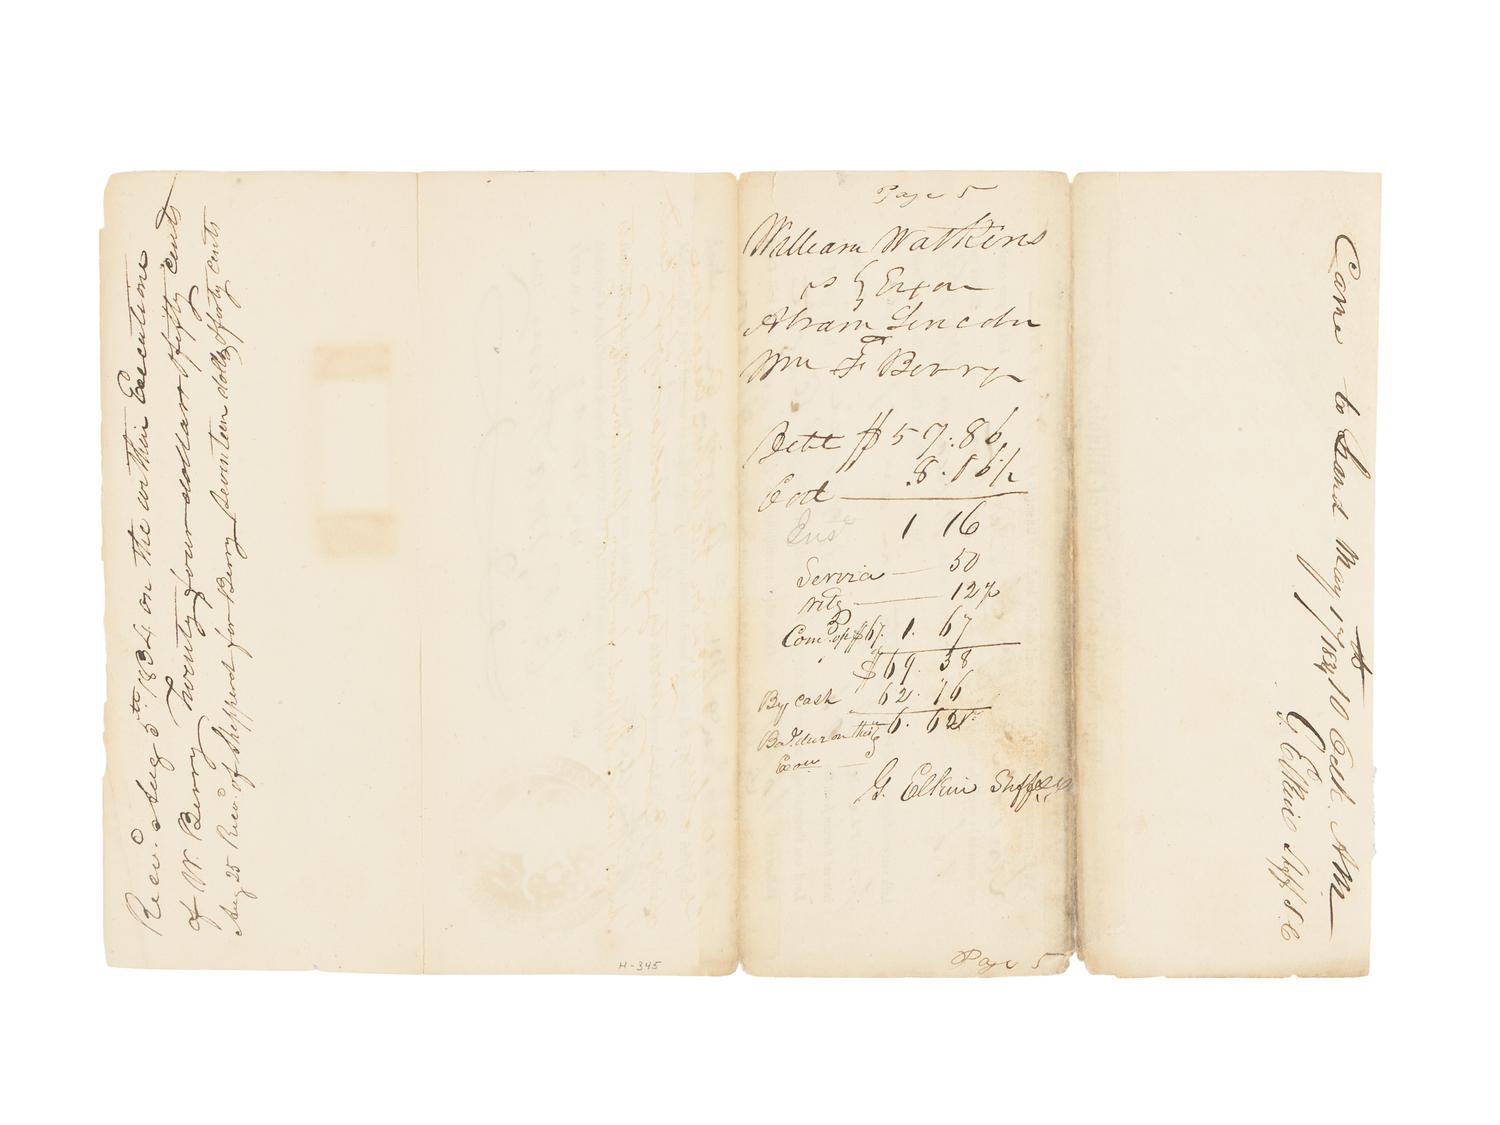 Recd. Aug 5th 1834. on the within Execution
of W. Berry Twenty four dollars & fifty cents
Aug 25 Recd. of Sheppard for Berry Seventeen dolls & forty cents
H-345
Page 5
William Watkins
vs } Exon
Abram Lincoln
&
Wm F Berry
Debt $57.86
Cost 8.16½
1 16
Service — 50
12½
Comn. of $67. 1. 67
$69. 38
By cash 62. 76
Bal. due on this 6. 62
Exon
G. Elkin Shff
Page 5
Came to hand May 1st 1834 10 Oclk. AM
G Elkin Shff S. C